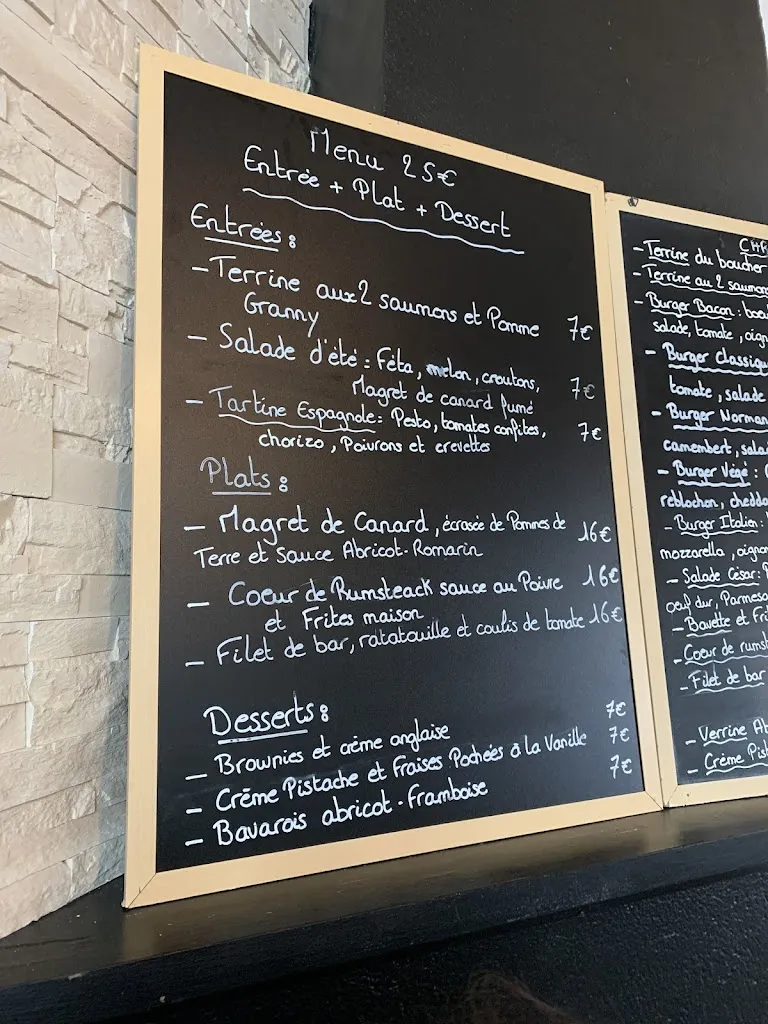 Menu 25€
Entrée + Plat + Dessert
Entrées :
- Terrine aux 2 saumons et Pomme
Granny 7€
- Salade d'été : Féta, melon, croutons,
Magret de canard fumé 7€
- Tartine Espagnole : Pesto, tomates confites,
chorizo, Poivrons et crevettes 7€
Plats :
- Magret de Canard, écrasée de Pommes de
Terre et Sauce Abricot-Romarin 16€
- Coeur de Rumsteack sauce au Poivre 16€
et Frites maison
- Filet de bar, ratatouille et coulis de tomate 16€
Desserts :
- Brownies et crème anglaise 7€
- Crème Pistache et Fraises Pochées à la Vanille 7€
- Bavarois abricot-Framboise 7€
- Terrine du boucher
- Terrine au 2 saumons
- Burger Bacon :
salade, tomate,
- Burger classique
tomate, salade
- Burger Norman
camembert,
- Burger Végé :
reblochon,
- Burger Italien :
mozzarella,
- Salade César :
oeuf dur,
- Bavette et
- Coeur de
- Filet de bar
- Verrine
- Crème